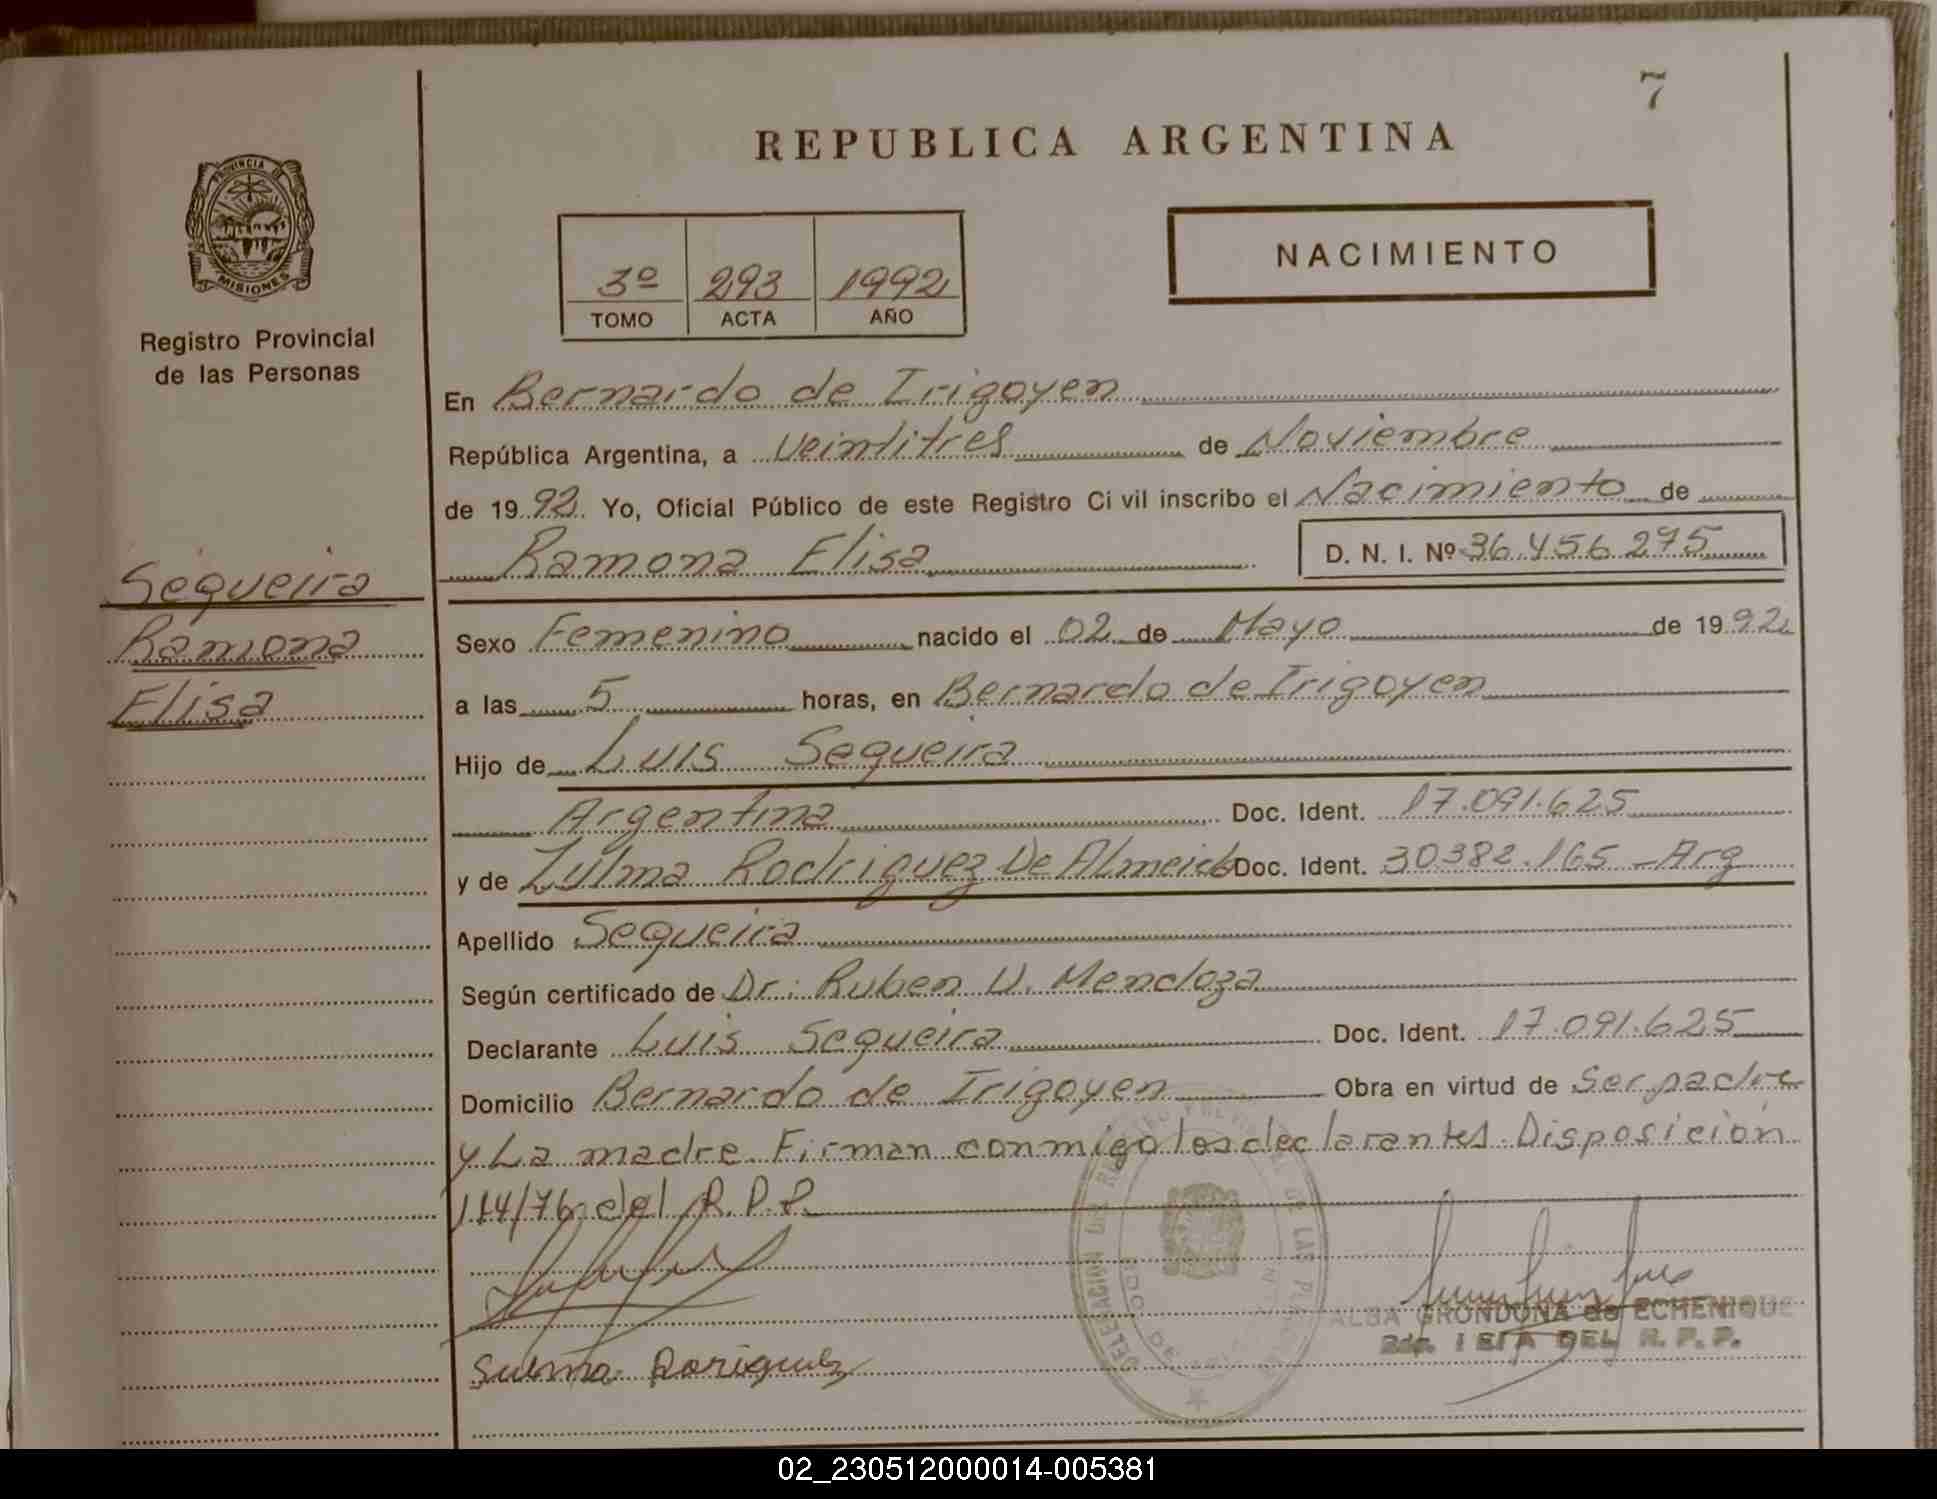 7
REPUBLICA ARGENTINA
PROVINCIA DE
MISIONES
Registro Provincial
de las Personas
3º 293 1992
TOMO ACTA AÑO
NACIMIENTO
En Bernardo de Irigoyen
República Argentina, a Veintitres de Noviembre
de 19 92. Yo, Oficial Público de este Registro Civil inscribo el Nacimiento de
Ramona Elisa D. N. I. Nº 36.456.275
Sequeira
Ramona
Elisa
Sexo Femenino nacido el 02 de Mayo de 19 92
a las 5 horas, en Bernardo de Irigoyen
Hijo de Luis Sequeira
Argentina Doc. Ident. 17.091.625
y de Zulma Rodriguez De Almeida Doc. Ident. 30382.165 - Arg
Apellido Sequeira
Según certificado de Dr: Ruben U. Mendoza
Declarante Luis Sequeira Doc. Ident. 17.091.625
Domicilio Bernardo de Irigoyen Obra en virtud de Ser padre
y La madre. Firman conmigo los declarantes. Disposición
114/76 del R.P.P.
ALBA GRONDONA de ECHENIQUE
DEL R. P. P.
Sulma Rorigues
DELEGACION DEL
DE LAS
02_230512000014-005381